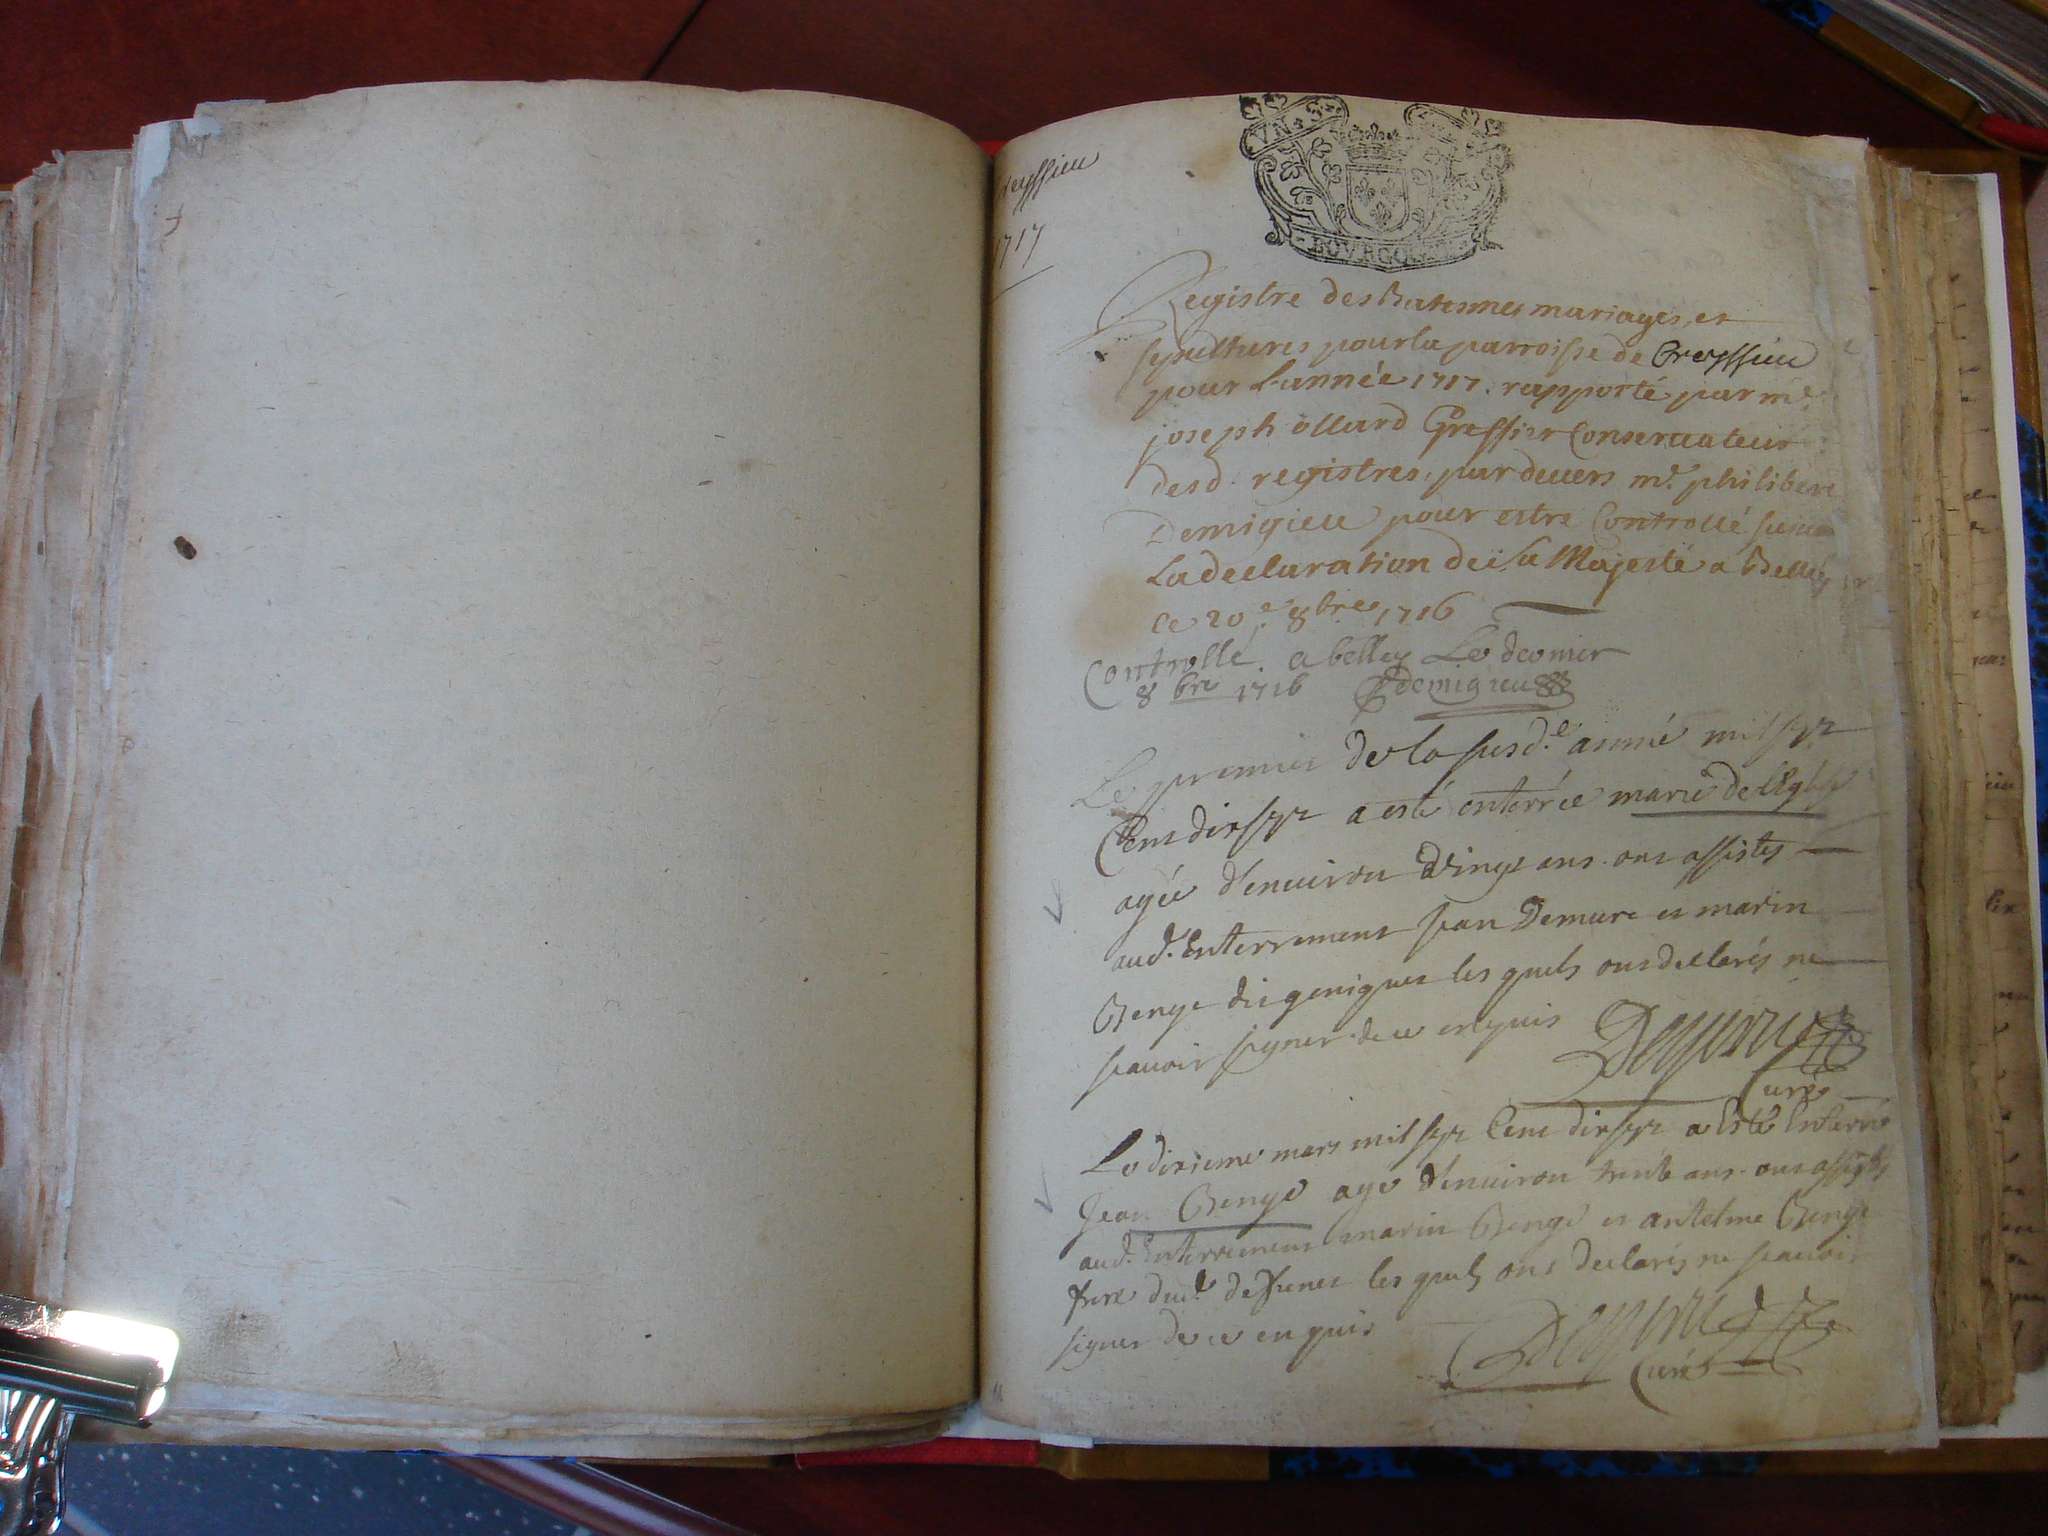 Creyssieu
1717
VN S
BOVRGOG
Registre des Batesmes mariages, et
sepultures pour la parroisse de Creyssieu
pour L'année 1717. rapporté par me.
joseph öllard Greffier Conseruateur
desd. registres, par deuers mr. philibert
Demigieu pour estre Controllé suiuant
La declaration de sa Majesté a Belley
ce 20e. 8bre 1716
Controllé a belley Le
8bre 1716 Demigieu
Le premier de la susd.e année mil sept
Cent dix sept a esté enterrée marie de l'Eglise
agée d'enuiron vingt ans ont assistés
aud. Enterrement jean Demure et marin
Benge lesquels ont declarés ne
scauoir signer de ce enquis
Curé
Le dixieme mars mil sept Cent dix sept a Esté Enterré
Jean Benge agé d'enuiron trente ans ont assistés
aud. Enterrement marin Benge et antelme Benge
frere dud. deffunct lesquels ont declarés ne scauoir
signer de ce enquis
Curé